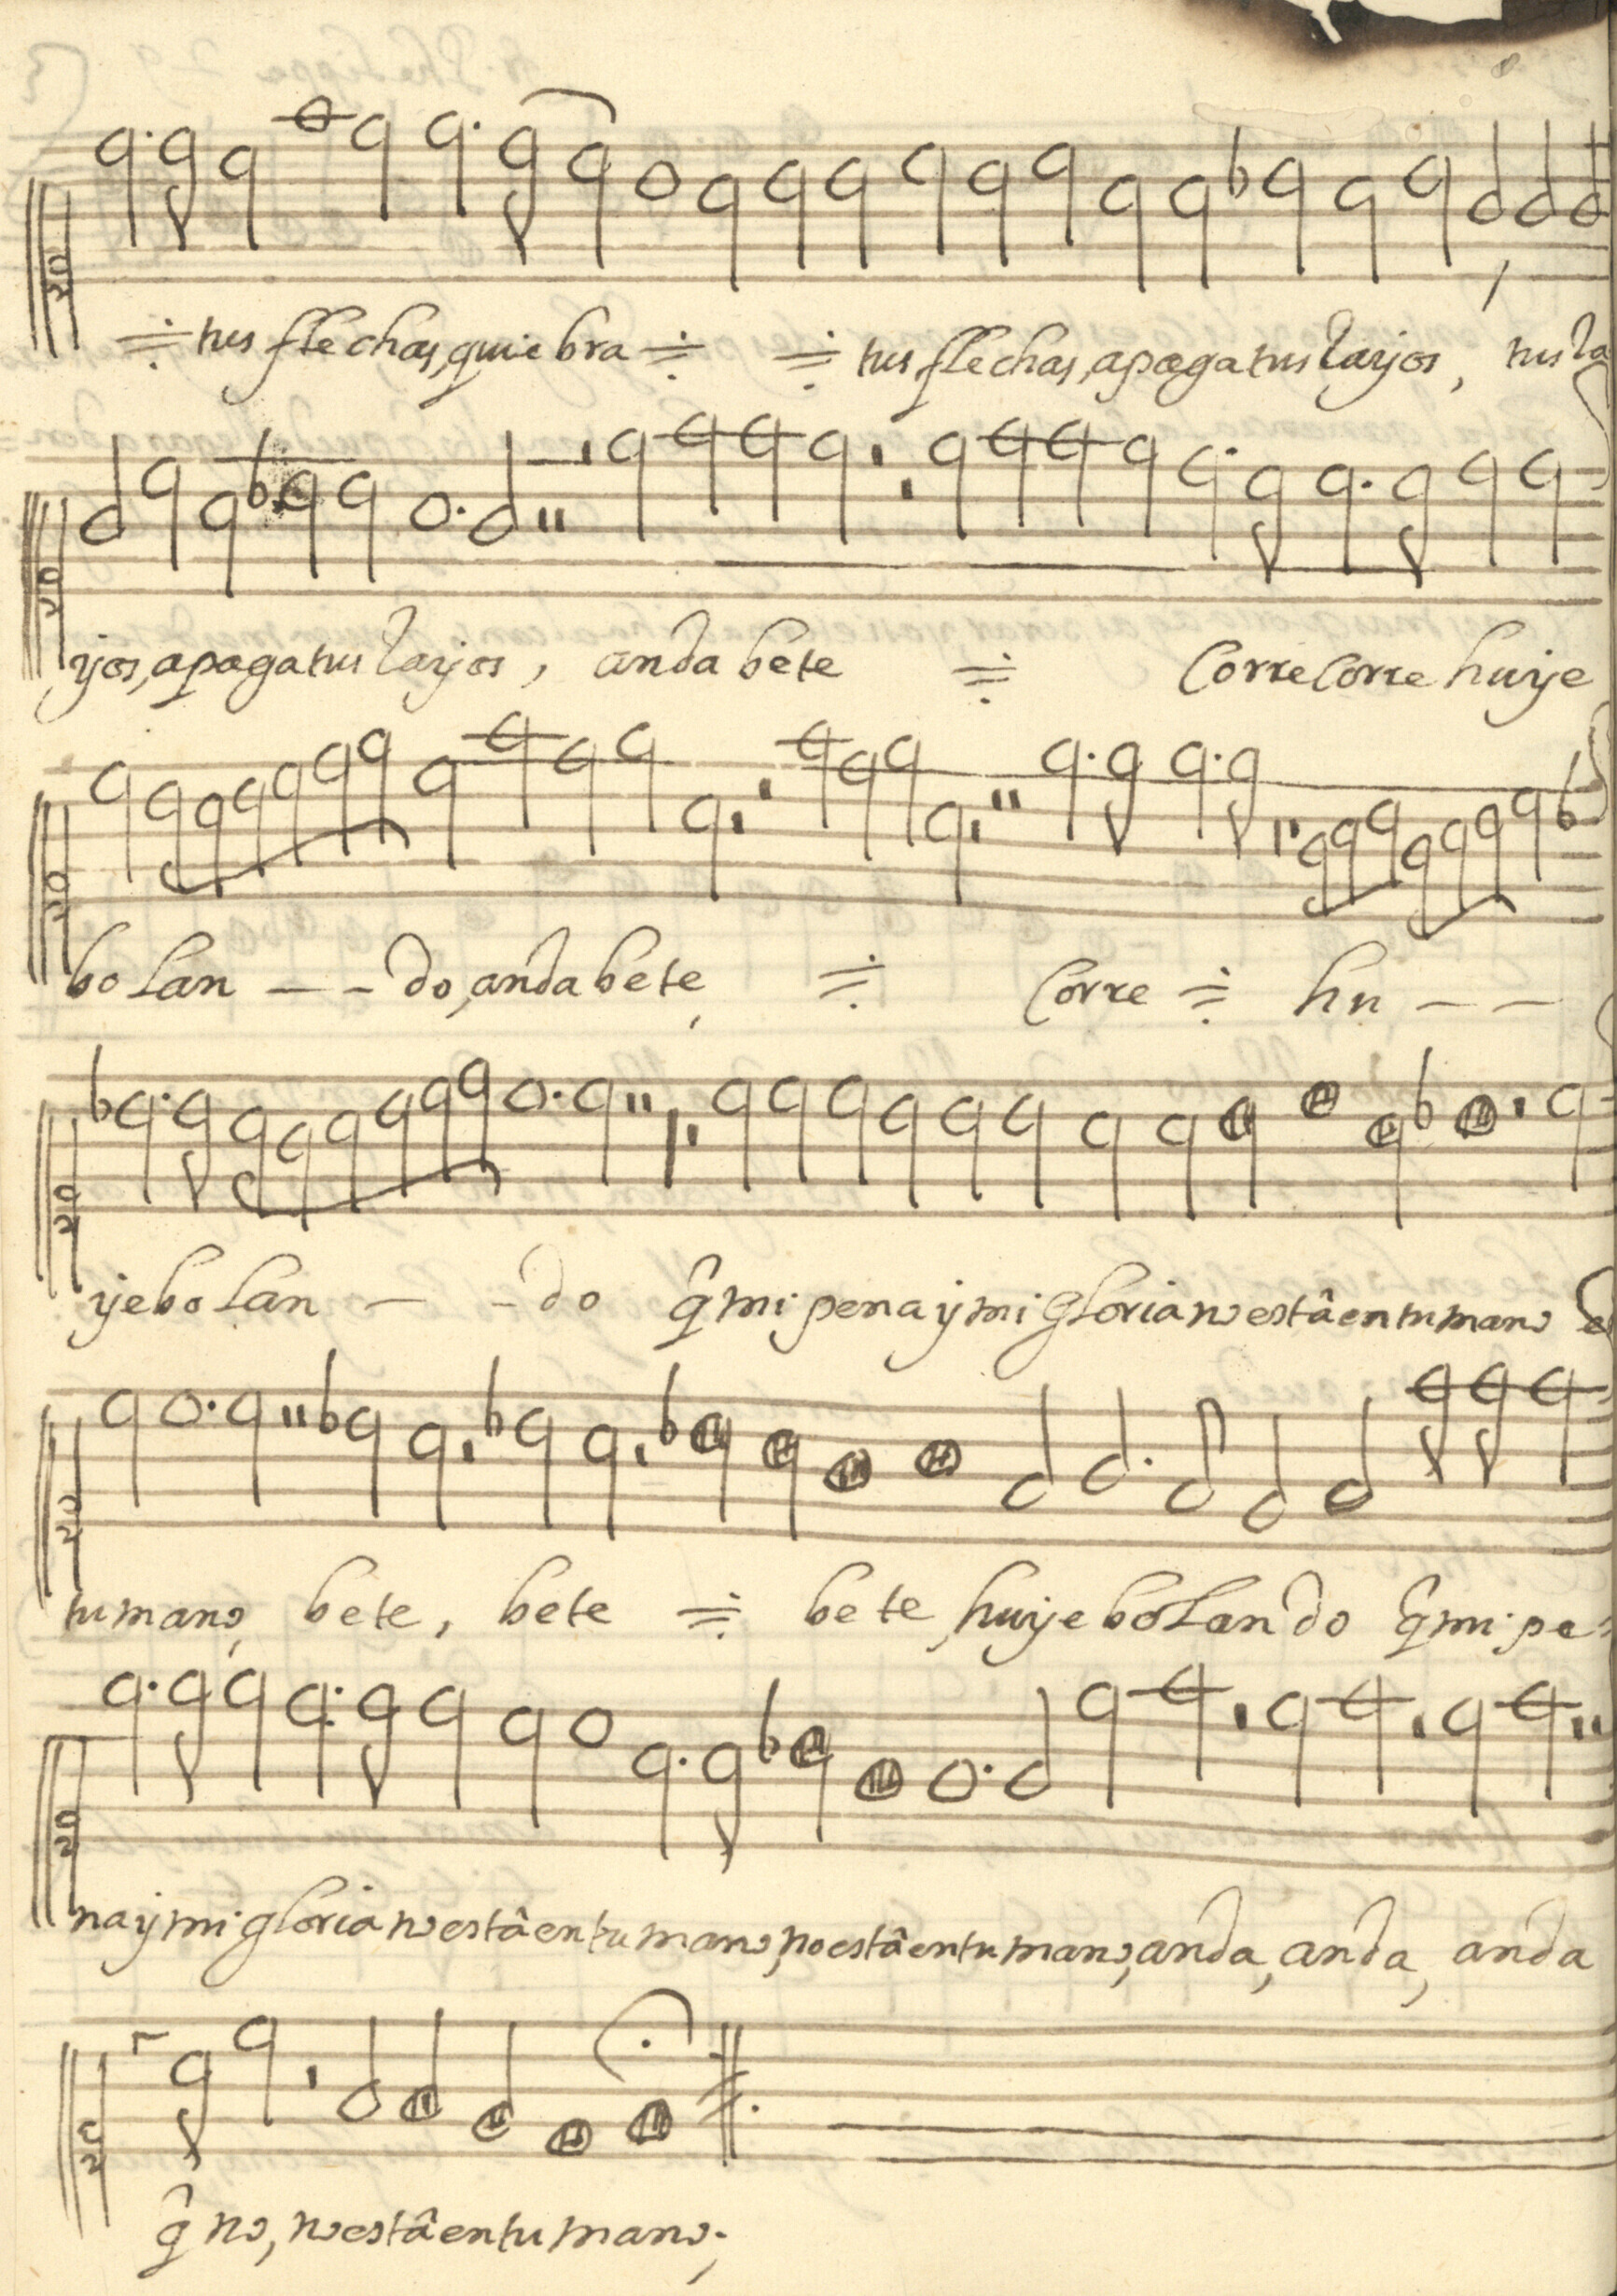 tus flechas, quiebra tus flechas, apaga tus rayos, tus ra
yos, apaga tus rayos, anda bete corre corre huye
bo lan - - do, anda bete, corre hu - -
ye bo lan - - do q̂ mi pena y mi gloria no està en tu mano e
tu mano, bete, bete bete, huye bolando q̂ mi pe-
na y mi gloria no està en tu mano, no està en tu mano, anda, anda, anda
q̂ no, no està en tu mano.